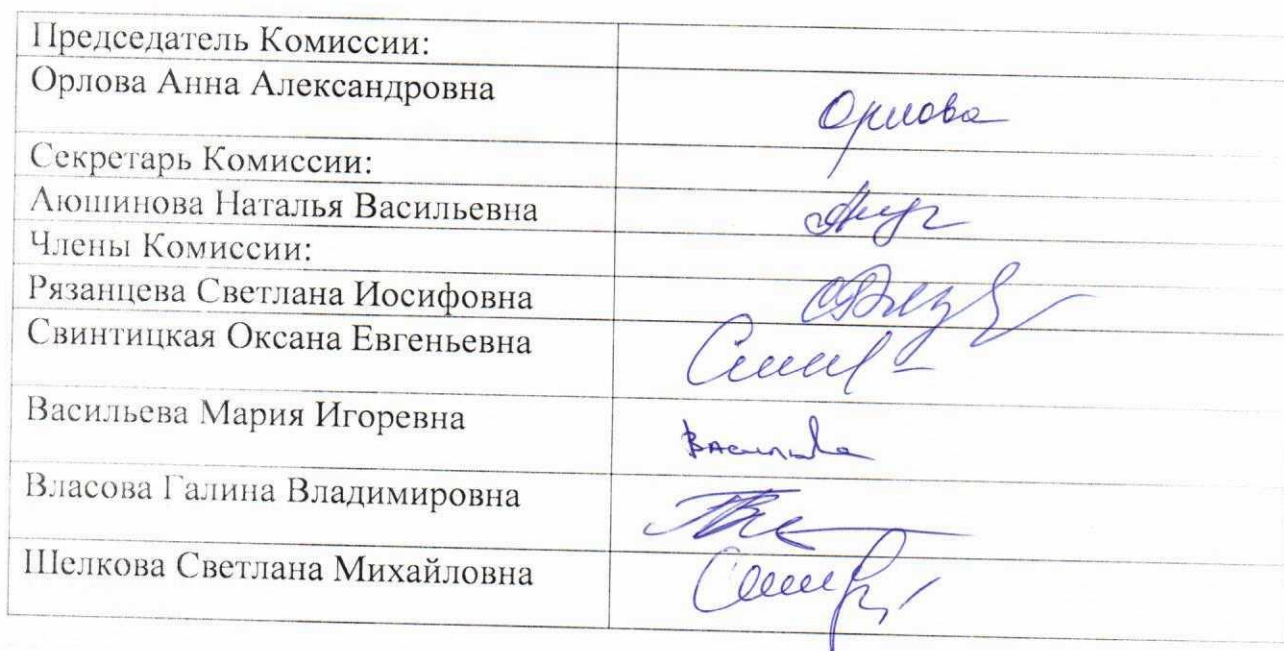 Председатель Комиссии:
Орлова Анна Александровна
Орлова
Секретарь Комиссии:
Аюшинова Наталья Васильевна
Члены Комиссии:
Рязанцева Светлана Иосифовна
Свинтицкая Оксана Евгеньевна
Васильева Мария Игоревна
Власова Галина Владимировна
Шелкова Светлана Михайловна